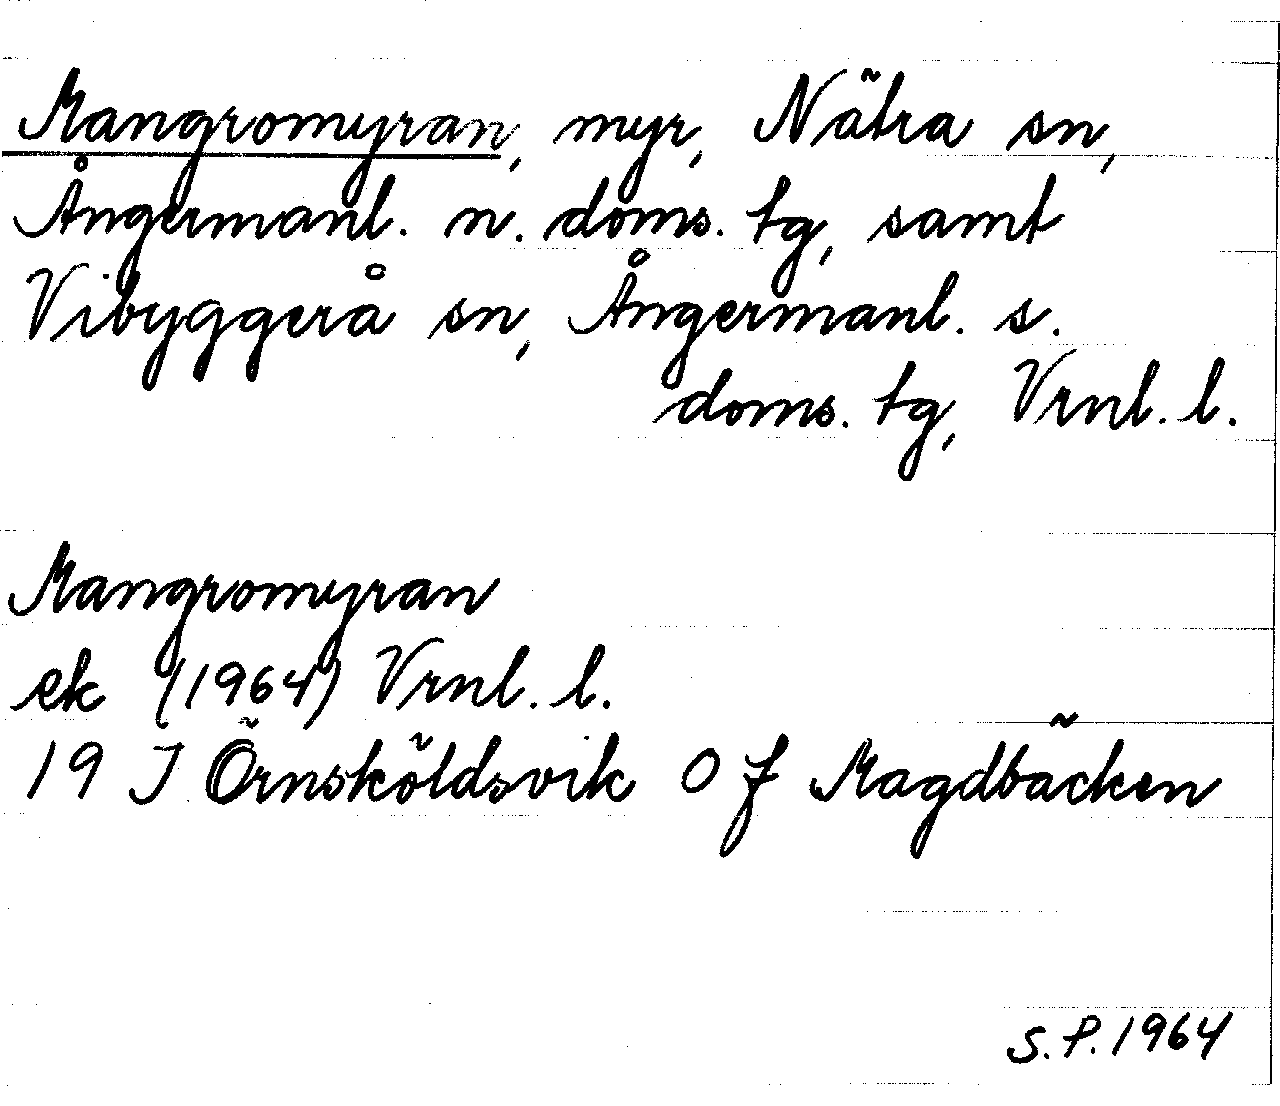 Mangromyran, myr, Nätra sn,
Ångermanl. n. doms. tg, samt
Vibyggerå sn, Ångermanl. s.
doms. tg, Vrnl. l.
Mangromyran
ek (1964) Vrnl. l.
19 J Örnsköldsvik O f Magdbäcken
S.P. 1964